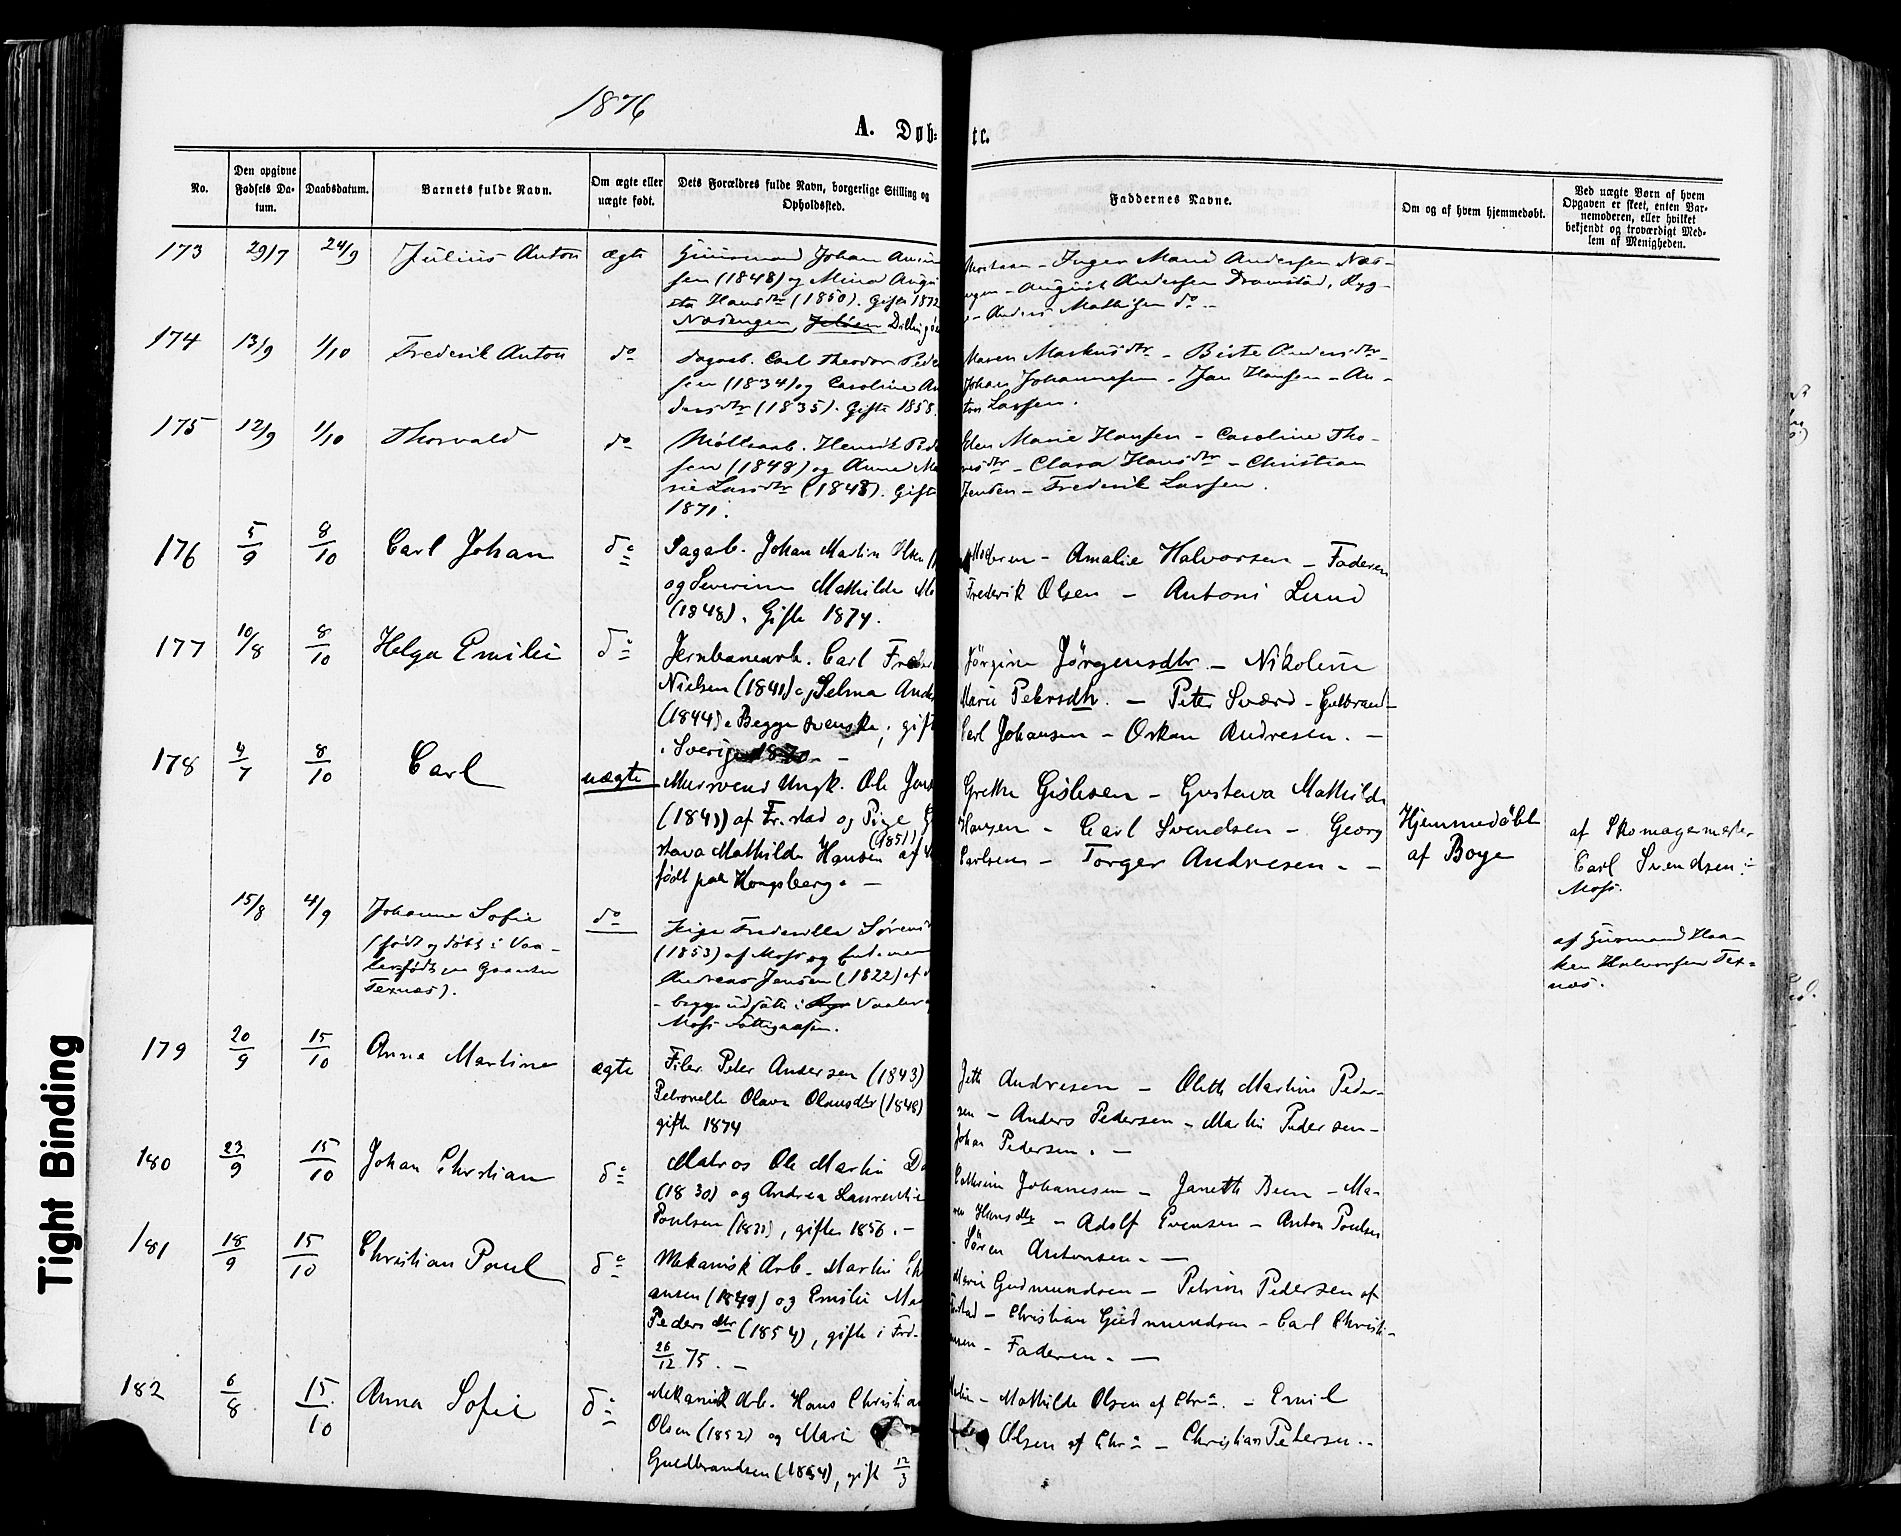 1876
A. Døb-
tc.
No.
Den opgivne Fødsels Da-tum.
Daabsdatum.
Barnets fulde Navn.
Om ægte eller uægte født.
Dets Forældres fulde Navn, borgerlige Stilling og Opholdssted.
Faddernes Navne.
Om og af hvem hjemmedøbt.
Ved uægte Børn af hvem Opgaven er skeet, enten Bar-nemoderen, eller hvilket bekjendt og troværdigt Med-lem af Menigheden.
173 29/7 24/9 Julius Anton ægte
Johan
sen (1848) og Mina Augu
sta Hansdtr (1850). Gifte 1872
Inger Marie Andersen Næs-
August Andersen
Anders Mathisen do -
174 13/9 1/10 Frederik Anton do
Dagarb. Carl Theodor Pede
sen (1834) og Caroline An
dersdtr (1835). Gifte 1858.
Maren Markusdtr - Berte Andersdtr -
Johan Johannesen - Jan Hansen - An-
ton Larsen.
175 12/9 1/10 Thorvald do
Møllearb. Henrik Pede
sen (1848) og Anne Ma
rie Larsdtr (1848). Gifte
1871.
Elen Marie Hansen - Caroline Tho-
resdtr - Clara Hansdtr - Christian
Jensen - Frederik Larsen.
176 5/9 8/10 Carl Johan do
Dagarb. Johan Martin Olsen
og Severine Mathilde
(1848). Gifte 1874.
Moderen - Amalie Halvorsen - Faderen
Frederik Olsen - Antoni Lund
177 10/8 8/10 Helga Emilie do
Jernbanearb. Carl Freder
Nielsen (1841) og Selma Ande
(1844). Begge svenske, gift
i Sverige 1870. -
Jørgine Jørgensdtr - Nikoline
Marie Petersdtr. - Peter Sværd - Gulbrand
Carl Johansen - Oskar Andresen. -
178 4/7 8/10 Carl uægte
Mursvend Ungk. Ole Jens
af Fr.stad og Pige G
stava Mathilde Hansen (1851) af
født paa Kongsberg. -
Grethe Gislesen - Gustava Mathilde
Hansen - Carl Svendsen - Georg
Carlsen - Torger Andresen. -
Hjemmedøbt
af Boye
af Skomagermester
Carl Svendsen
Moss.
15/8 4/9 Johanne Sofie do
(født og døbt i Vaa-
ler, født paa Gaarden
Texnæs).
Pige Frederikke Sørens
(1853) af Moss og Enkemand
Andreas Jensen (1822) af
- begge udsatte i Vaaler
Moss Fattigvæsen.
af Gaardmand Haa-
ken Halvorsen Tex-
næs.
179 20/9 15/10 Anna Martine ægte
Filer Peter Andersen (1843)
Petronelle Olava Olausdtr (1848)
gifte 1874
Andresen - Oleth Martine Peder-
sen - Anders Pedersen - Martin Pedersen -
Johan Pedersen. -
180 23/9 15/10 Johan Christian do
Matros Ole Martin
(1830) og Andrea Laurentie
Poulsen, gifte 1856. -
Cathrine Johannesen - Janeth - Ma-
ren Hansdtr - Adolf Evensen - Anton Poulsen
- Søren Antonsen. -
181 18/9 15/10 Christian Poul do
Mekanisk Arb. Martin Ch
ansen (1849) og Emilie
Pedersdtr (1854), gifte i Frd-
26/12 75. -
Marie Gudmundsen - Petrine Pedersen af
stad - Christian Gudmundsen - Carl Christi-
ansen - Faderen. -
182 6/8 15/10 Anna Sofie do
Mekanisk Arb. Hans Christian
Olsen (1852) og Marie
Guldbrandsen (1854), gift 12/3
- Mathilde Olsen af Chr.a - Emil
Olsen af Chr.a - Christian Petersen. -
Tight Binding